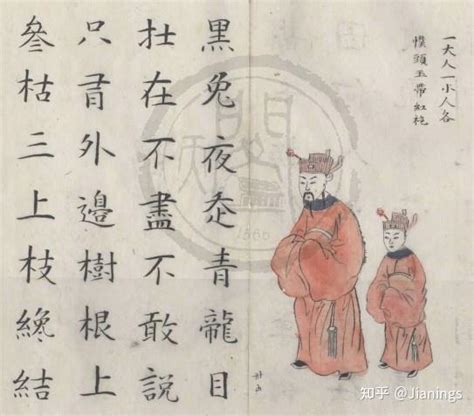 一大人一小人各
幞頭玉帶紅袍
黑兔夜青龍目
在不盡不敢說
只外邊樹根上
叅枯三上枝纔結
1866
知乎 @Jianings